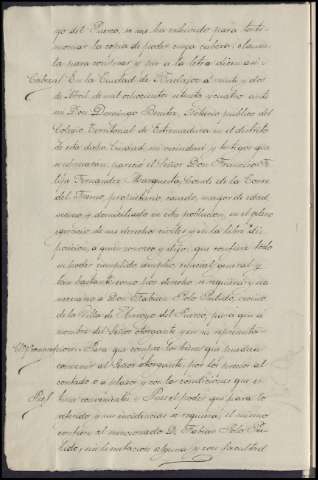 yo del Puerco, se me ha exhibido para testi-
moniar la copia de poder cuya cabeza, clausu-
la para comprar y pie a la letra dicen asi =
Cabeza) En la Ciudad de Badajoz á veinte y dos
de Abril de mil ochocientos ochenta y cuatro: ante
mi Don Domingo Benitez, Notario publico del
Colegio Territorial de Extremadura en el distrito
de esta dicha Ciudad mi vecindad y testigos que
se espresarán, parece el Señor Don Francisco Fe-
lipe Fernandez Marquesta, Conde de la Torre
del Fresno, propietario, casado, mayor de edad,
vecino y domiciliado en esta poblacion, en el pleno
egercicio de sus derechos civiles y en la libre dis-
posicion, a quien conozco y dijo: que confiere todo
su poder cumplido, amplio, especial, general y
tan bastante como por derecho se requiera y sea
necesario a Don Fabian Polo Pulido, vecino
de la Villa de Arroyo del Puerco, para que á
nombre del Señor otorgante y en su representa-
cion = Para que compre los bienes que puedan
convenir al Señor otorgante, por los precios al
contado o a plazos y con las condiciones que es-
Pie) time convenientes = Pues el poder que para lo
referido é sus incidencias se requiera, el mismo
confiere al mencionado D. Fabian Polo Pu-
lido, sin limitacion alguna y con facultad